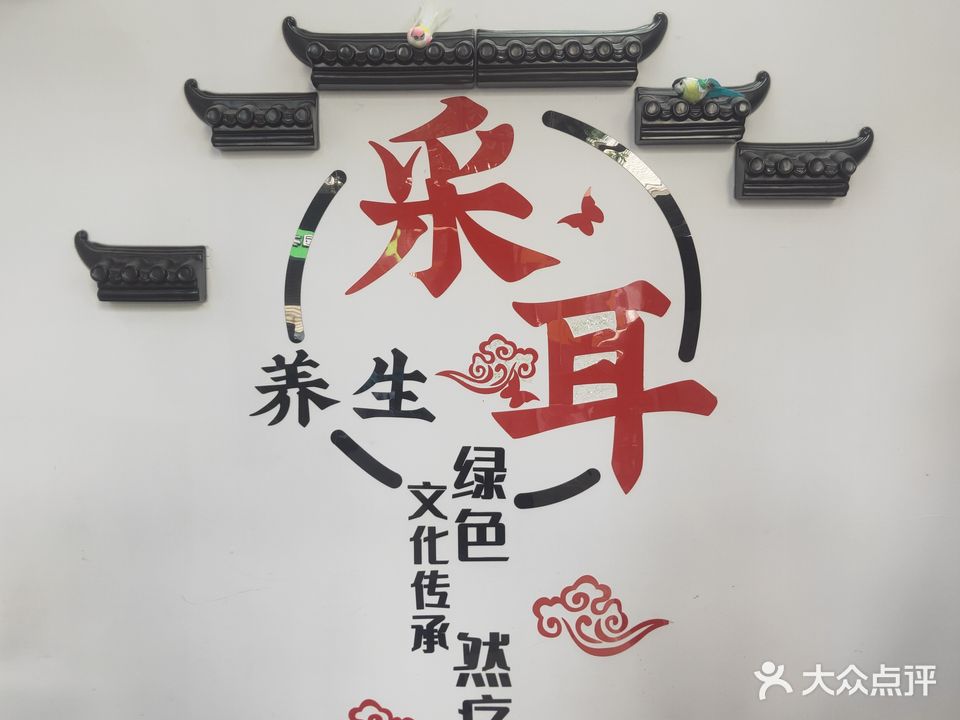 采耳
养生
绿色 然疗
文化传承
大众点评